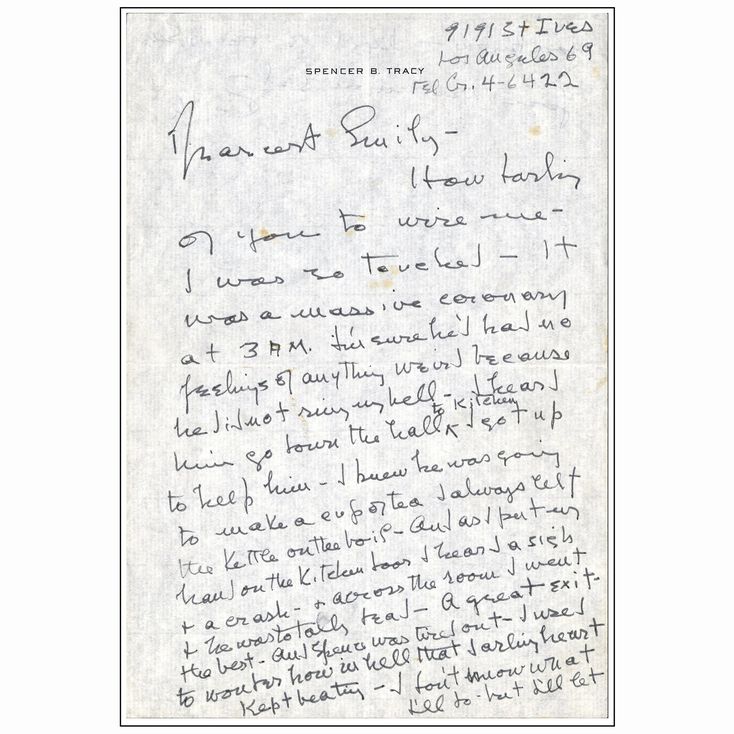 9191 St Ives
Los Angeles 69
SPENCER B. TRACY
Tel Cr. 4-6422
Dearest Emily -
How darling
of you to wire me -
I was so touched - It
was a massive coronary
at 3 AM. I'm sure he'd had no
feelings of anything weird because
he did not ring my bell - I heard
him go down the hall to Kitchen I got up
to help him - I knew he was going
to make a cup of tea I always left
the Kettle on the boil - And as I put my
hand on the Kitchen door I heard a sigh
+ a crash - + across the room I went
+ he was totally dead - A great exit -
the best - And Spence was tired out - I used
to wonder how in hell that darling heart
Kept beating - I don't know what
I'll do - but I'll let